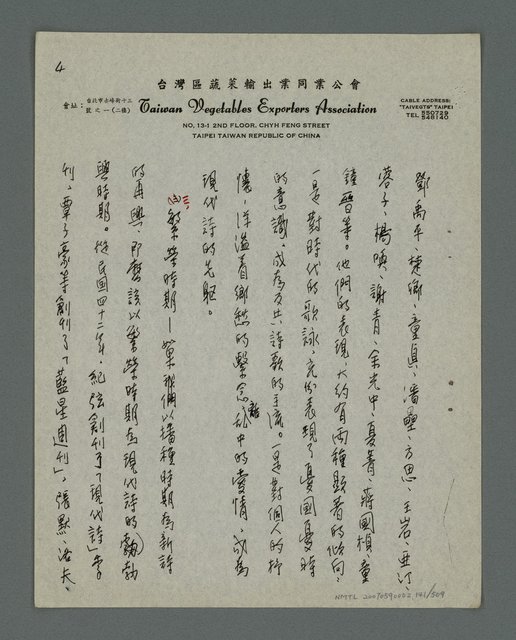 4
台灣區蔬菜輸出業同業公會
會址：台北市赤峰街十三號之一（二樓）
Taiwan Vegetables Exporters Association
NO. 13-1 2ND FLOOR, CHYH FENG STREET
TAIPEI TAIWAN REPUBLIC OF CHINA
CABLE ADDRESS:
"TAIVEGTS" TAIPEI
TEL 550729
548140
鄧禹平、楚卿、童真、潘壘、方思、王岩、亞汀、
蓉子、楊喚、謝青、余光中、夏菁、蔣國楨、童
鍾晉等。他們的表現，大約有兩種顯著的傾向：
一是對時代的歌詠，充份表現了憂國憂時
的意識，成為反共詩歌的主流。一是對個人的抒
懷，洋溢着鄉愁的繫念，離亂中的愛情，成為
現代詩的先驅。
㈢繁榮時期—如果我們以播種時期為新詩
的再興，那麼該以繁榮時期為現代詩的勃
興時期。從民國四十二年，紀弦創刊了「現代詩」季
刊，覃子豪等創刊了「藍星週刊」，張默、洛夫、
NMTL 20070590002 141/509